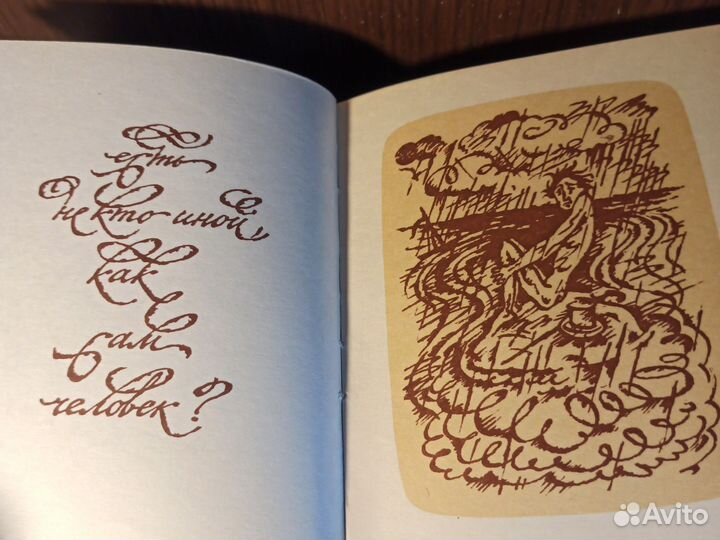 есть
некто иной
как
сам
человек?
Avito